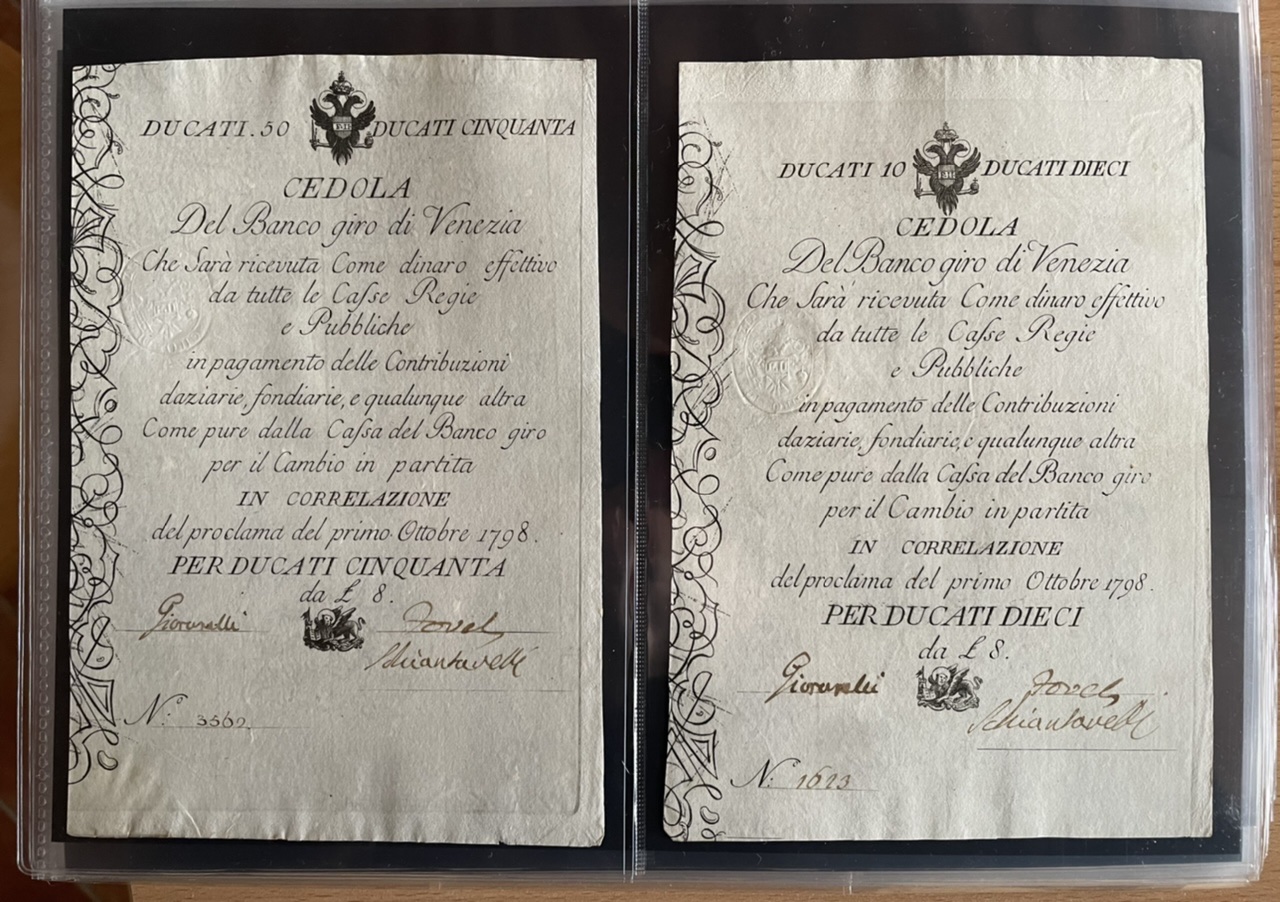 DUCATI . 50 DUCATI CINQUANTA
CEDOLA
Del Banco giro di Venezia
Che Sarà ricevuta Come dinaro effettivo
da tutte le Caſse Regie
e Pubbliche
in pagamento delle Contribuzioni
daziarie, fondiarie, e qualunque altra
Come pure dalla Caſsa del Banco giro
per il Cambio in partita
IN CORRELAZIONE
del proclama del primo Ottobre 1798 .
PER DUCATI CINQUANTA
da £ 8 .
N:
DUCATI 10 DUCATI DIECI
CEDOLA
Del Banco giro di Venezia
Che Sarà ricevuta Come dinaro effettivo
da tutte le Caſse Regie
e Pubbliche
in pagamento delle Contribuzioni
daziarie, fondiarie, e qualunque altra
Come pure dalla Caſsa del Banco giro
per il Cambio in partita
IN CORRELAZIONE
del proclama del primo Ottobre 1798 .
PER DUCATI DIECI
da £ 8 .
N: 1623